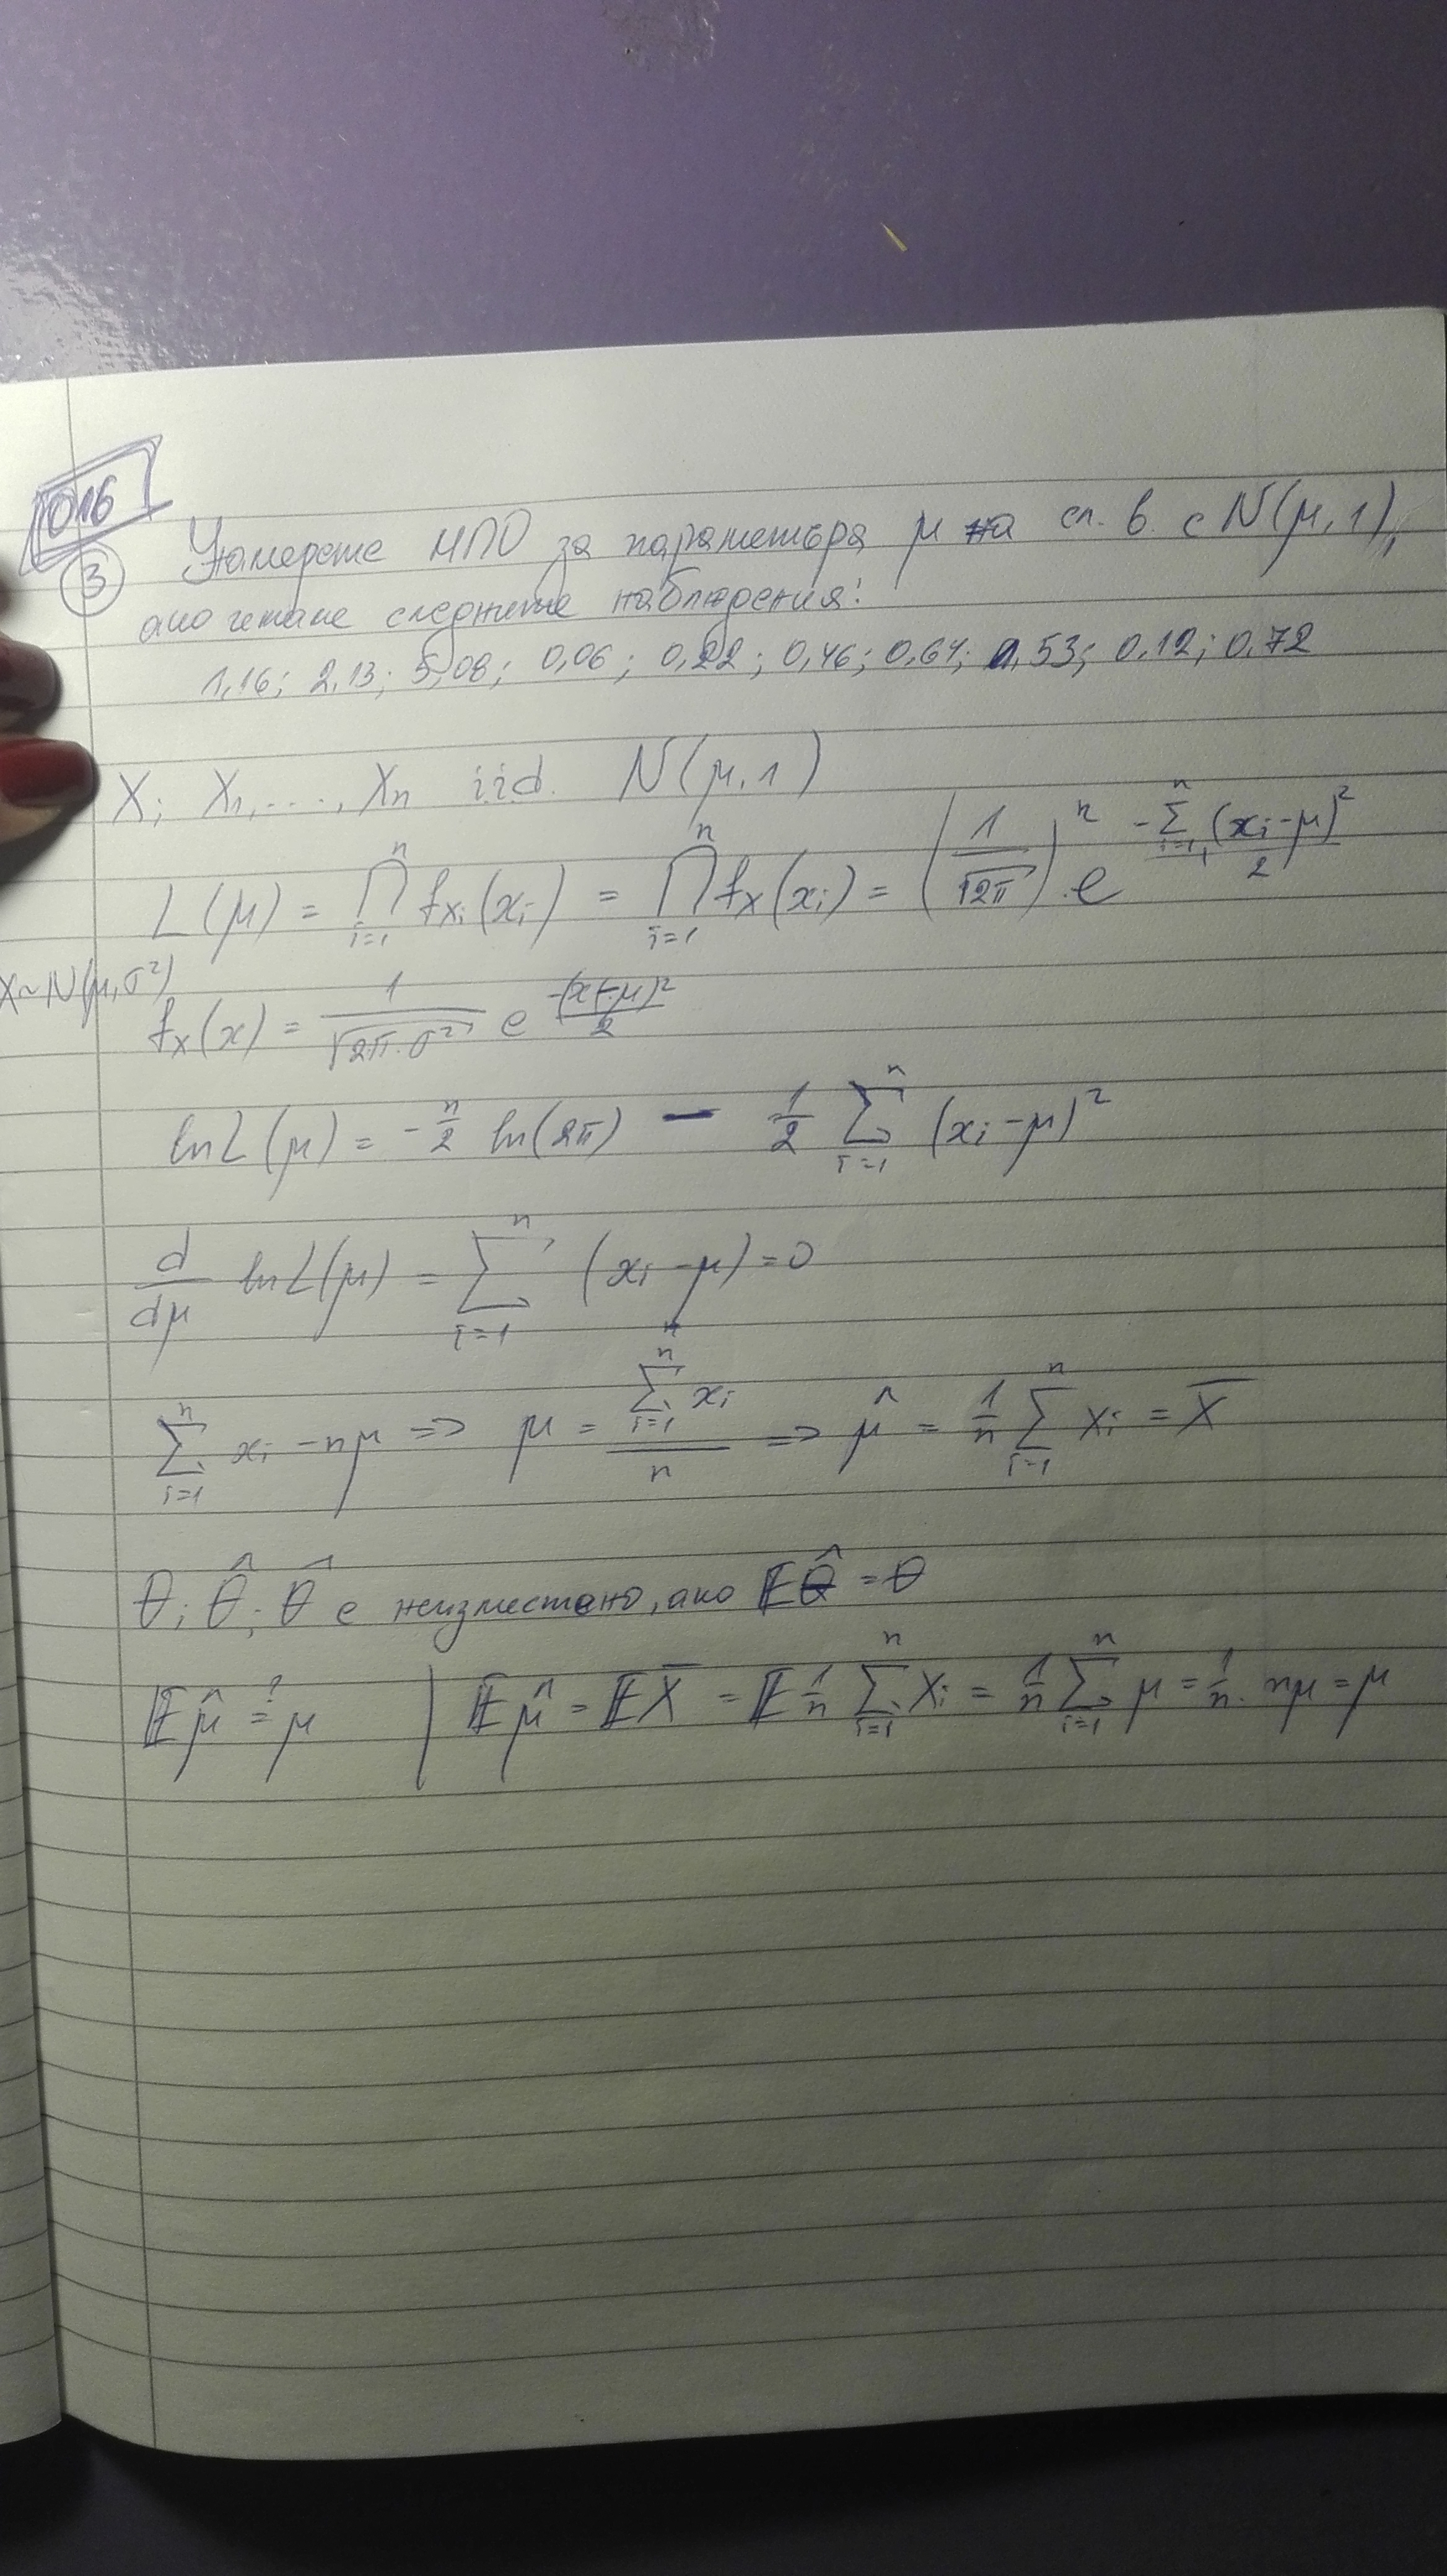 016
③ Намерете МПО за параметъра μ на сл. в. с N(μ,1),
ако имаме следните наблюдения:
1,16; 2,13; 5,08; 0,06; 0,22; 0,46; 0,64; 1,53; 0,12; 0,72
X; X₁,...,Xₙ iid. N(μ,1)
L(μ) = ∏ᵢ₌₁ⁿ f_{Xᵢ}(xᵢ) = ∏ᵢ₌₁ⁿ f_X(xᵢ) = (1/√2π)ⁿ . e^{-∑ᵢ₌₁ⁿ (xᵢ-μ)²/2}
X~N(μ,σ²)
f_X(x) = 1/√(2π.σ²) e^{-(x-μ)²/2}
lnL(μ) = -n/2 ln(2π) - 1/2 ∑ᵢ₌₁ⁿ (xᵢ-μ)²
d/dμ lnL(μ) = ∑ᵢ₌₁ⁿ (xᵢ-μ) = 0
∑ᵢ₌₁ⁿ xᵢ - nμ => μ = ∑ᵢ₌₁ⁿ xᵢ / n => μ̂ = 1/n ∑ᵢ₌₁ⁿ Xᵢ = X̅
θ; θ̂; θ̂ е неизместено, ако 𝔼θ̂ = θ
𝔼μ̂ ?= μ | 𝔼μ̂ = 𝔼X̅ = 𝔼 1/n ∑ᵢ₌₁ⁿ Xᵢ = 1/n ∑ᵢ₌₁ⁿ μ = 1/n . nμ = μ